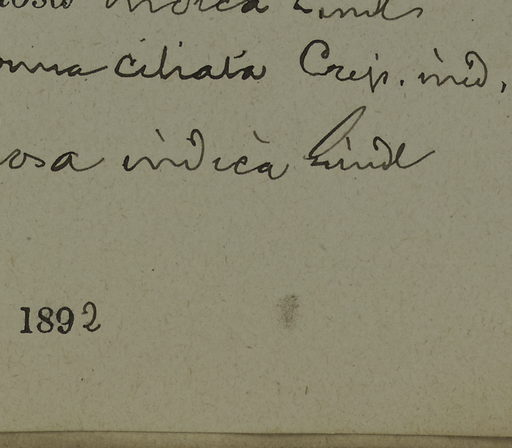 indica Lindl
ciliata Crep. ind.
osa indica Lindl
1892